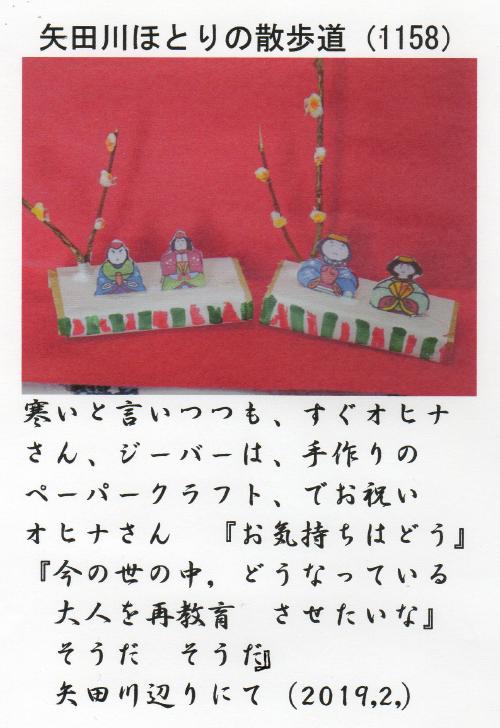 矢田川ほとりの散歩道（1158）
寒いと言いつつも、すぐオヒナ
さん、ジーバーは、手作りの
ペーパークラフト、でお祝い
オヒナさん　『お気持ちはどう』
『今の世の中，どうなっている
大人を再教育　させたいな』
そうだ　そうだ』
矢田川辺りにて（2019,2,）